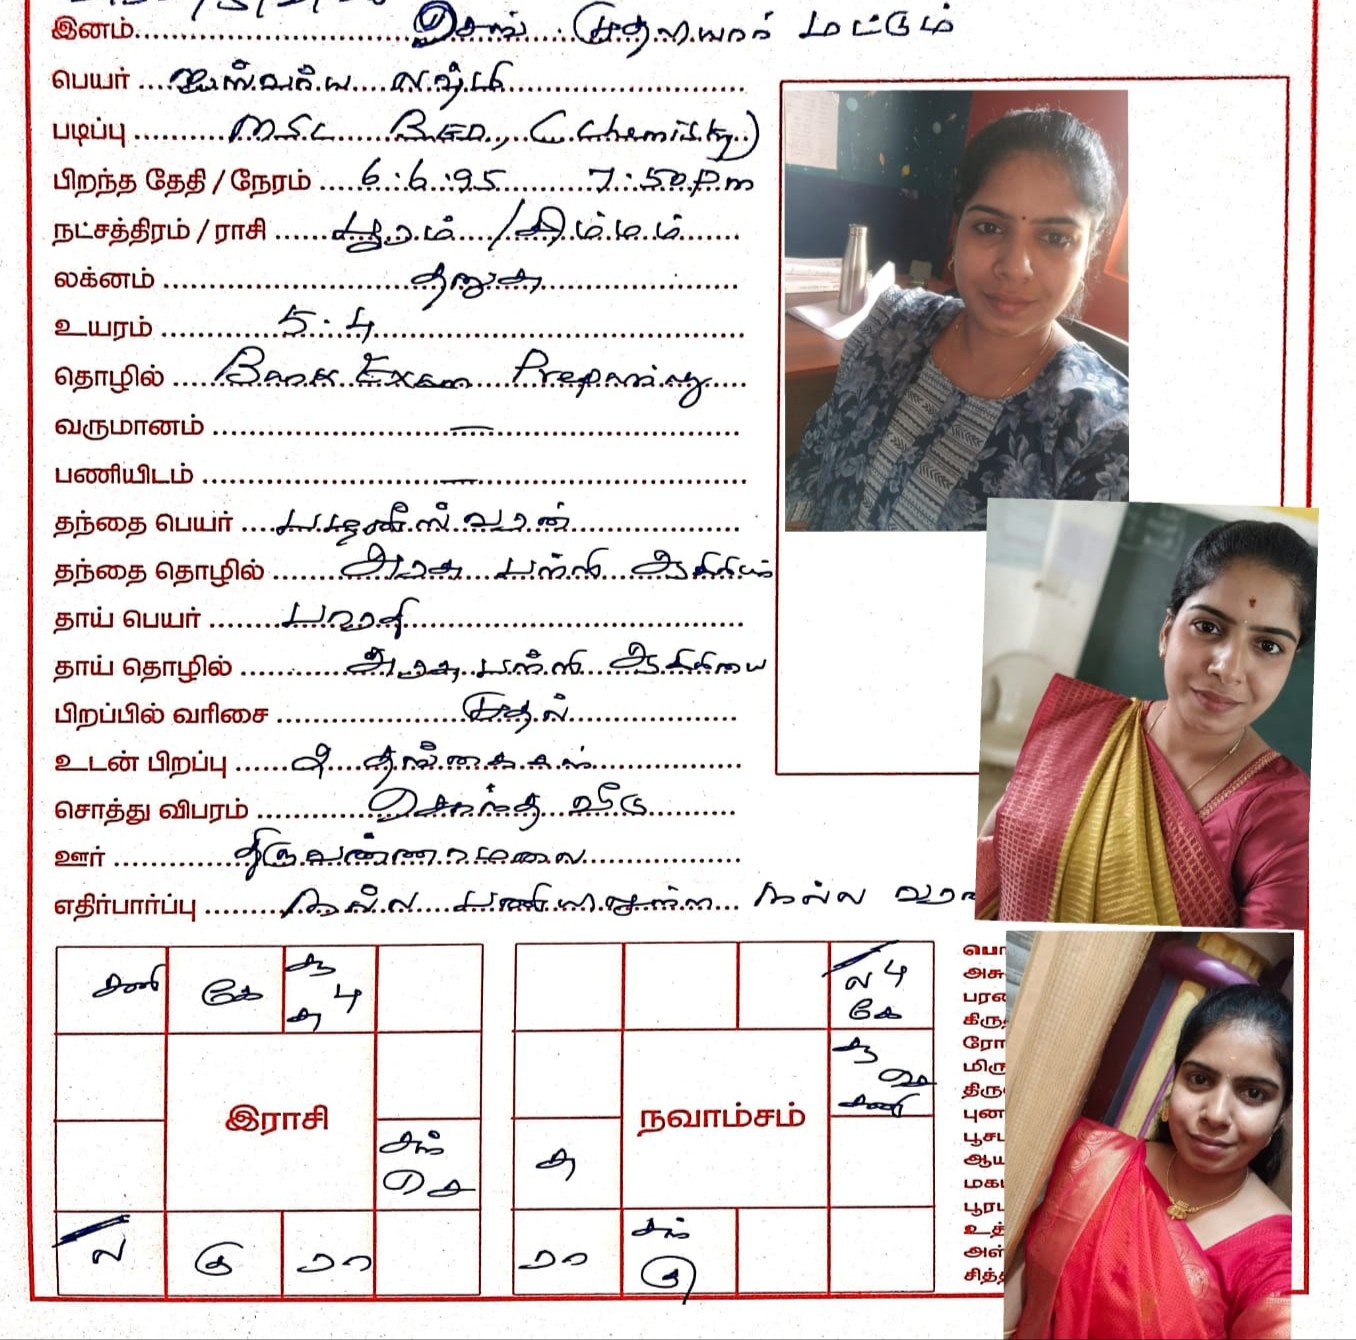 இனம் செங். முதலியார் மட்டும்
பெயர் ஐஸ்வர்ய லஷ்மி
படிப்பு M.SC B.ED., (Chemistry)
பிறந்த தேதி / நேரம் 6.6.95 7:50 P.m
நட்சத்திரம் / ராசி பூரம் / சிம்மம்
லக்னம் தனுசு
உயரம் 5.4
தொழில் Bank Exam Preparing
வருமானம் —
பணியிடம் —
தந்தை பெயர்
தந்தை தொழில் அரசு பள்ளி ஆசிரியர்
தாய் பெயர் பாரதி
தாய் தொழில் அரசு பள்ளி ஆசிரியை
பிறப்பில் வரிசை முதல்
உடன் பிறப்பு தங்கைகள்
சொத்து விபரம் சொந்த வீடு
ஊர் திருவண்ணாமலை
எதிர்பார்ப்பு நல்ல பணியிலுள்ள நல்ல வர
சனி கே சூ பு சு
ல பு கே
சூ வெ சனி
இராசி
நவாம்சம்
சந் செ
சு
ல கு ரா
ரா சந் கு
பொ
அசு
பரணி
கிரு
ரோ
மிரு
திரு
புன
பூச
ஆய
மக
பூர
உத்
அஸ்
சித்